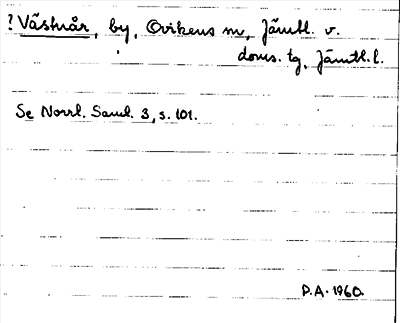 ? Västnår, by, Ovikens sn, Jämtl. v.
doms. tg, Jämtl. l.
Se Norrl. Saml. 3, s. 101.
P.A. 1960.